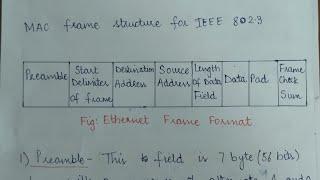 MAC frame structure for IEEE 802.3
Preamble
Start Delimiter of frame
Destination Address
Source Address
Length of Data Field
Data
Pad
Frame Check Sum
Fig: Ethernet Frame Format
1) Preamble - This field is 7 byte (56 bits)